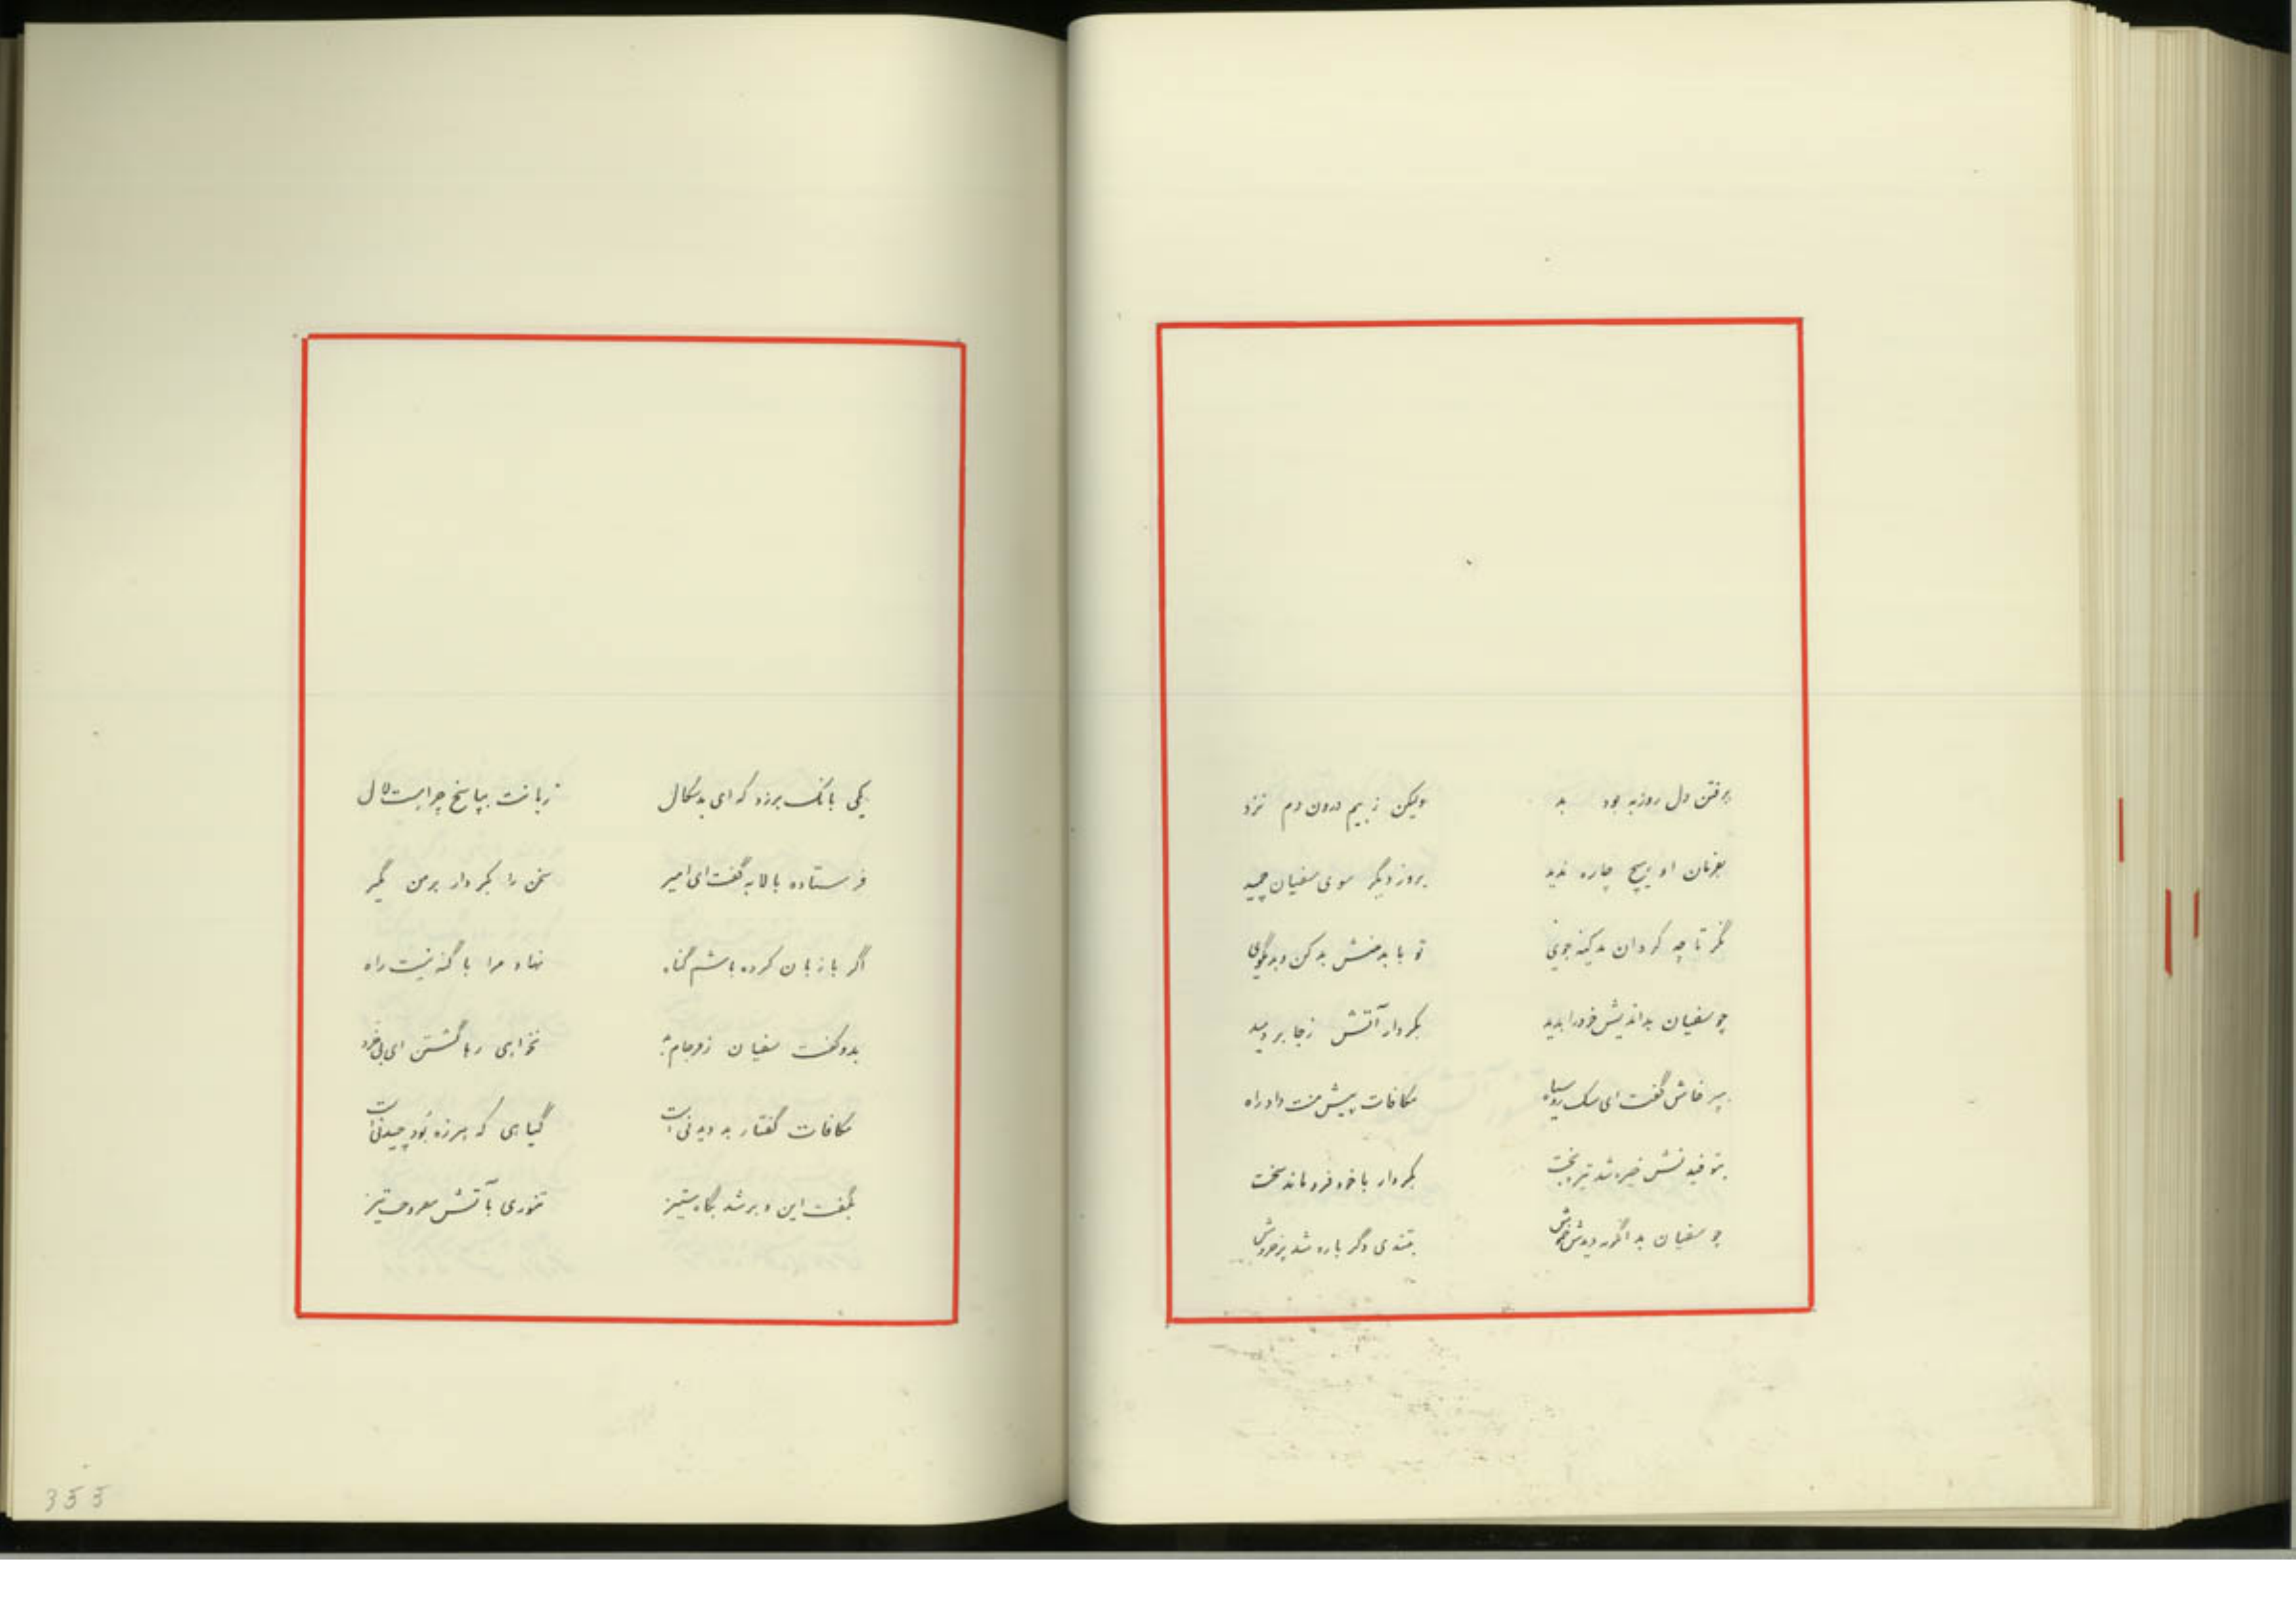 برفتن دل روزبه بود بد ولیکن ز بیم درون دم نزد
بفرمان او هیچ چاره ندید بروز دگر سوی سفیان چمید
نگر تا چه کرد آن بد کینه جوی تو با بدمنش بد کن و بد بگوی
چو سفیان بداندیش خود را بدید بکردار آتش ز جا بردمید
بپرخاش گفت ای سگ روسیاه مکافات پیش منت داد راه
بتوفید نش خیره شد تیره بخت بکردار با خود فرو ماند سخت
چو سفیان بد آنگونه دیدش خموش بتندی دگر باره شد پرخروش
یکی بانگ برزد که ای بدسگال زبانت بپاسخ چرا هست لال
فرستاده با لابه گفت ای امیر سخن را بکردار برمن مگیر
اگر با زبان کرده باشم گناه نهاد مرا با گنه نیست راه
بدو گفت سفیان ز فرجام بد نخواهی رها گشتن ای بی خرد
مکافات گفتار بد دیدنی است گیاهی که هرزه بُوَد چیدنی است
بگفت این و بر شد بگاه ستیز تنوری بآتش همی کرد تیز
355